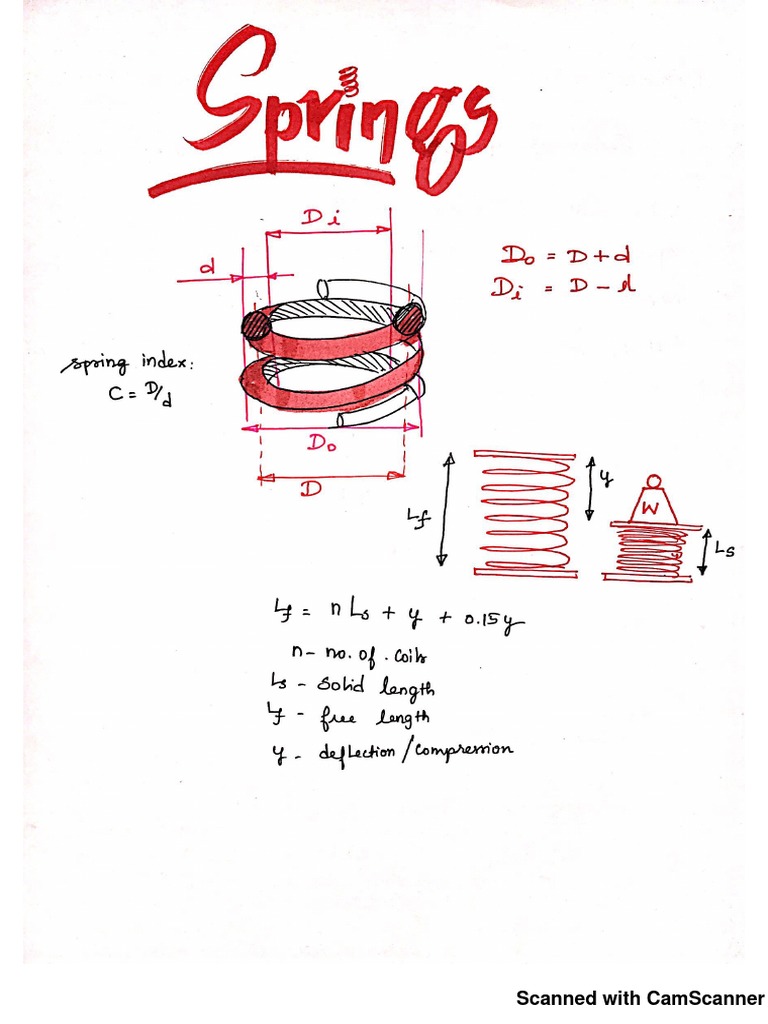 Springs
Di
d
Do = D + d
Di = D - d
spring index:
C = D/d
Do
D
Lf
y
W
Ls
Lf = n Ls + y + 0.15y
n - no. of. coils
Ls - Solid length
Lf - free length
y - deflection / compression
Scanned with CamScanner